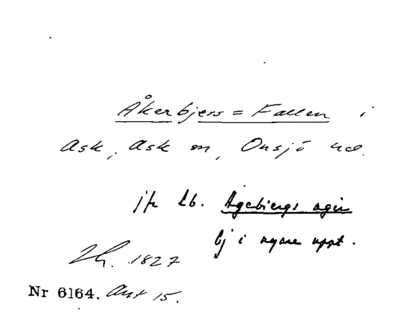 Åkerbjers=Fallen i
Ask, Ask sn, Onsjö hd.
jfr Lb. Agebiergs agir
Ej i nyare uppt.
Zh. 1827
Nr 6164. Akt 15.